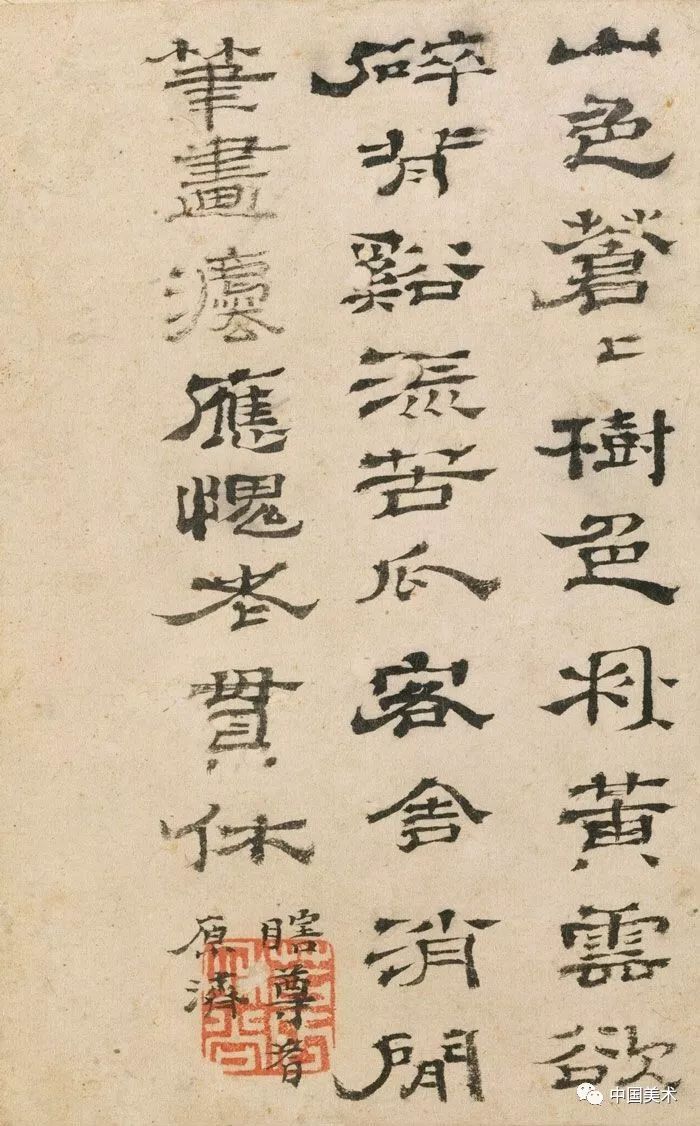 山色蒼〻樹色秋黃雲欲
碎背谿流苦瓜客舍消閒
筆畫灋應愧老貫休
瞎尊者
原濟
中国美术